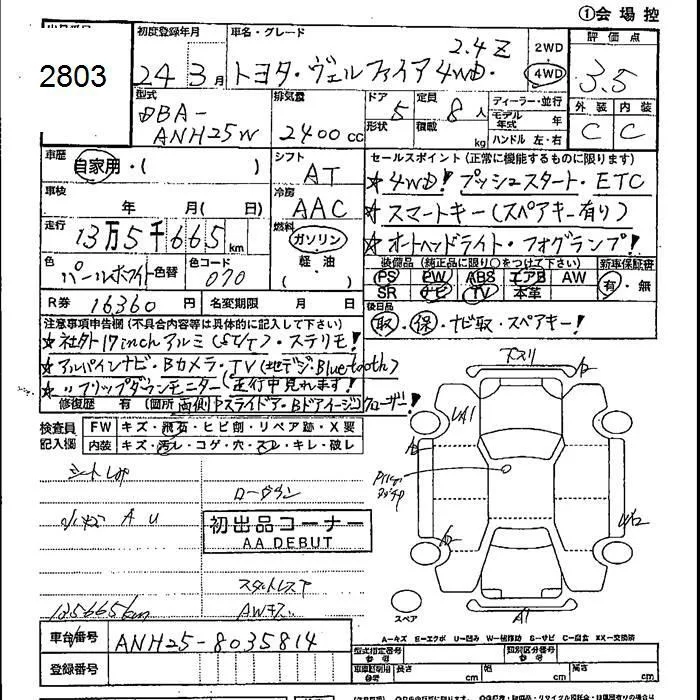 ①会場控
2803
初度登録年月
車名・グレード
24 3月
トヨタ・ヴェルファイア4WD.
2.4Z
2WD
4WD
評価点
3.5
外装 内装
C C
型式
DBA-
ANH25W
排気量
2400cc
ドア 5
定員 8人
形状
積載 kg
ディーラー・並行
モデル年式 年
ハンドル 左・右
車歴
自家用・( )
シフト
AT
車検
年 月( 日)
冷房
AAC
走行
13万5千665km
燃料
ガソリン
軽・油
( )
色
パールホワイト
色替
色コード
070
R券 16360円
名変期限 月 日
セールスポイント(正常に機能するものに限ります)
★4WD! プッシュスタート・ETC
★スマートキー(スペアキー有り)
★オートヘッドライト・フォグランプ!
装備品(純正品に限り○をつけて下さい)
新車保証書
PS PW ABS エアB AW
SR ナビ TV 本革
有・無
後日品
取・保・ナビ取・スペアキー!
注意事項申告欄(不具合内容等は具体的に記入して下さい)
★社外17inchアルミ(ST/T)・ステリモ!
★アルパインナビ・Bカメラ・TV(地デジ・Bluetooth)
★〃フリップダウンモニター(走行中見れます!
修復歴 有 (箇所 両側Pスライドア・Bドアイージークローザー!
検査員
記入欄
FW
キズ・飛石・ヒビ割・リペア跡・X要
内装
キズ・汚レ・コゲ・穴・スレ・キレ・破レ
ローダウン
A U
初出品コーナー
AA DEBUT
スタットレス
135665km
下スリ
A2
UA1
A2
A1
スペア
A=キズ E=エクボ U=凹み W=補修跡 S=サビ C=腐食 XX=交換済
車台番号
ANH25-8035814
登録番号
型式指定番号
参考
類別区分番号
参考
長さ cm
幅 cm
高さ cm